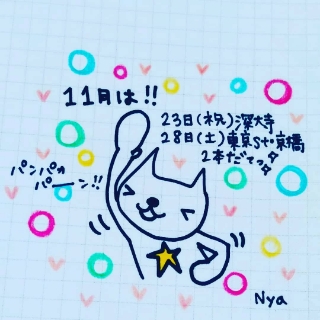 11月は!!
23日(祝)深大寺
28日(土)東京St.京橋
2本だてっ
パンパカ
パーン!!
Nya